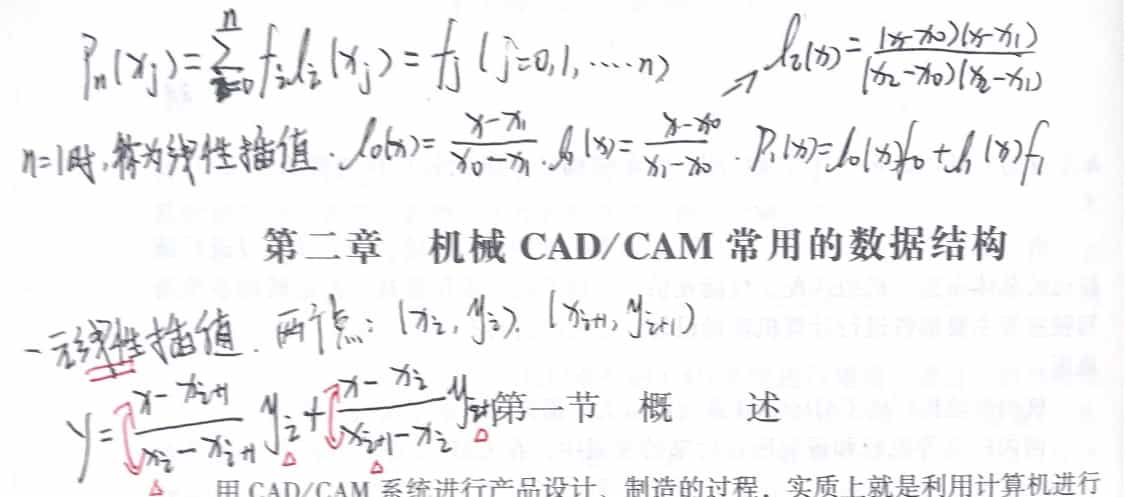 Pn(xj)=∑_{i=0}^{n} fi li(xj) = fj (j=0,1,……n) → l2(x)=\frac{(x-x0)(x-x1)}{(x2-x0)(x2-x1)}
n=1时,称为线性插值. l0(x)=\frac{x-x1}{x0-x1}. l1(x)=\frac{x-x0}{x1-x0}. P1(x)=l0(x)f0+l1(x)f1
第二章 机械 CAD/CAM 常用的数据结构
一元线性插值. 两个点: (xi, yi), (xi+1, yi+1)
y=\frac{x-xi+1}{xi-xi+1} yi+\frac{x-xi}{xi+1-xi} yi+1
第 节 概 述
用 CAD/CAM 系统进行产品设计、制造的过程，实质上就是利用计算机进行